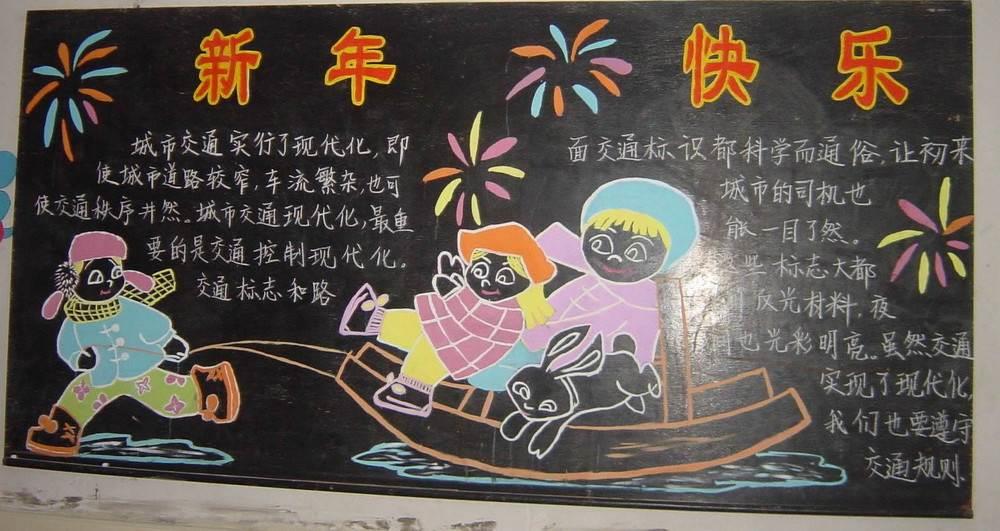 新年快乐
城市交通实行了现代化,即
使城市道路较窄,车流繁杂,也可
使交通秩序井然。城市交通现代化,最重
要的是交通控制现代化。
交通标志和路
面交通标识都科学而通俗,让初来
城市的司机也
能一目了然。
这些标志大都
反光材料,夜
间也光彩明亮。虽然交通
实现了现代化,
我们也要遵守
交通规则.